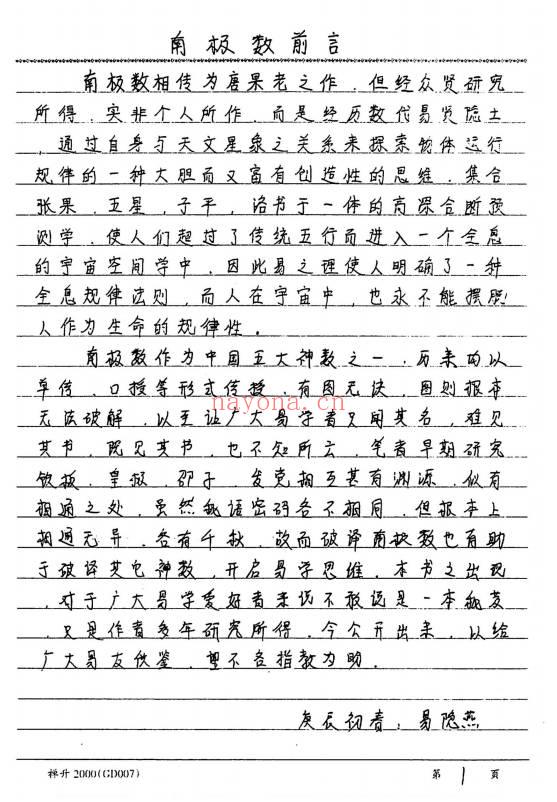 南极数前言
南极数相传为唐果老之作，但经众贤研究
所得，实非个人所作，而是经历数代易贤隐士
，通过自身与天文星象之关系来探索物体运行
规律的一种大胆而又富有创造性的思维，集合
张果、五星，子平，洛书于一体的高深合断预
测学，使人们超过了传统五行而进入一个全息
的宇宙空间学中，因此易之理使人明确了一种
全息规律法则，而人在宇宙中，也永不能摆脱
人作为生命的规律性。
南极数作为中国五大神数之一，历来的以
草传，口授等形式传授，有图无诀，图则根本
无法破解，以至让广大易学者只闻其名，难见
其书，既见其书，也不知所云，笔者早期研究
铁板，皇极，邵子，发觉相互甚有渊源，似有
相通之处，虽然秘语密码各不相同，但根本上
相通无异，各有千秋，故而破译南极数也有助
于破译其它神数，开启易学思维，本书之出现
，对于广大易学爱好者来说不敢说是一本秘笈
，只是作者多年研究所得，今公开出来，以给
广大易友伙鉴，望不吝指教为助．
庚辰初春；易隐燕
nayona.cn
禅升2000(GD007)
第 1 页